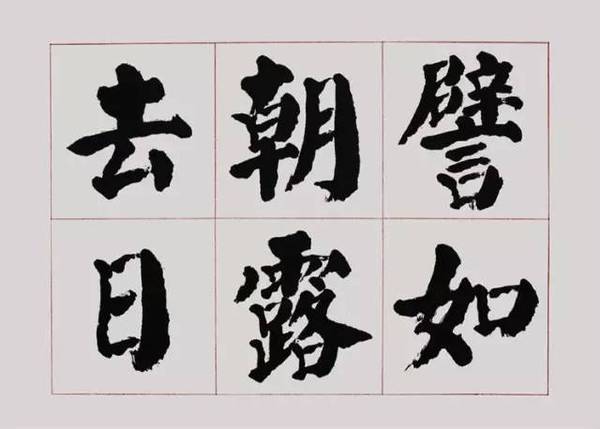 譬如
朝露
去日